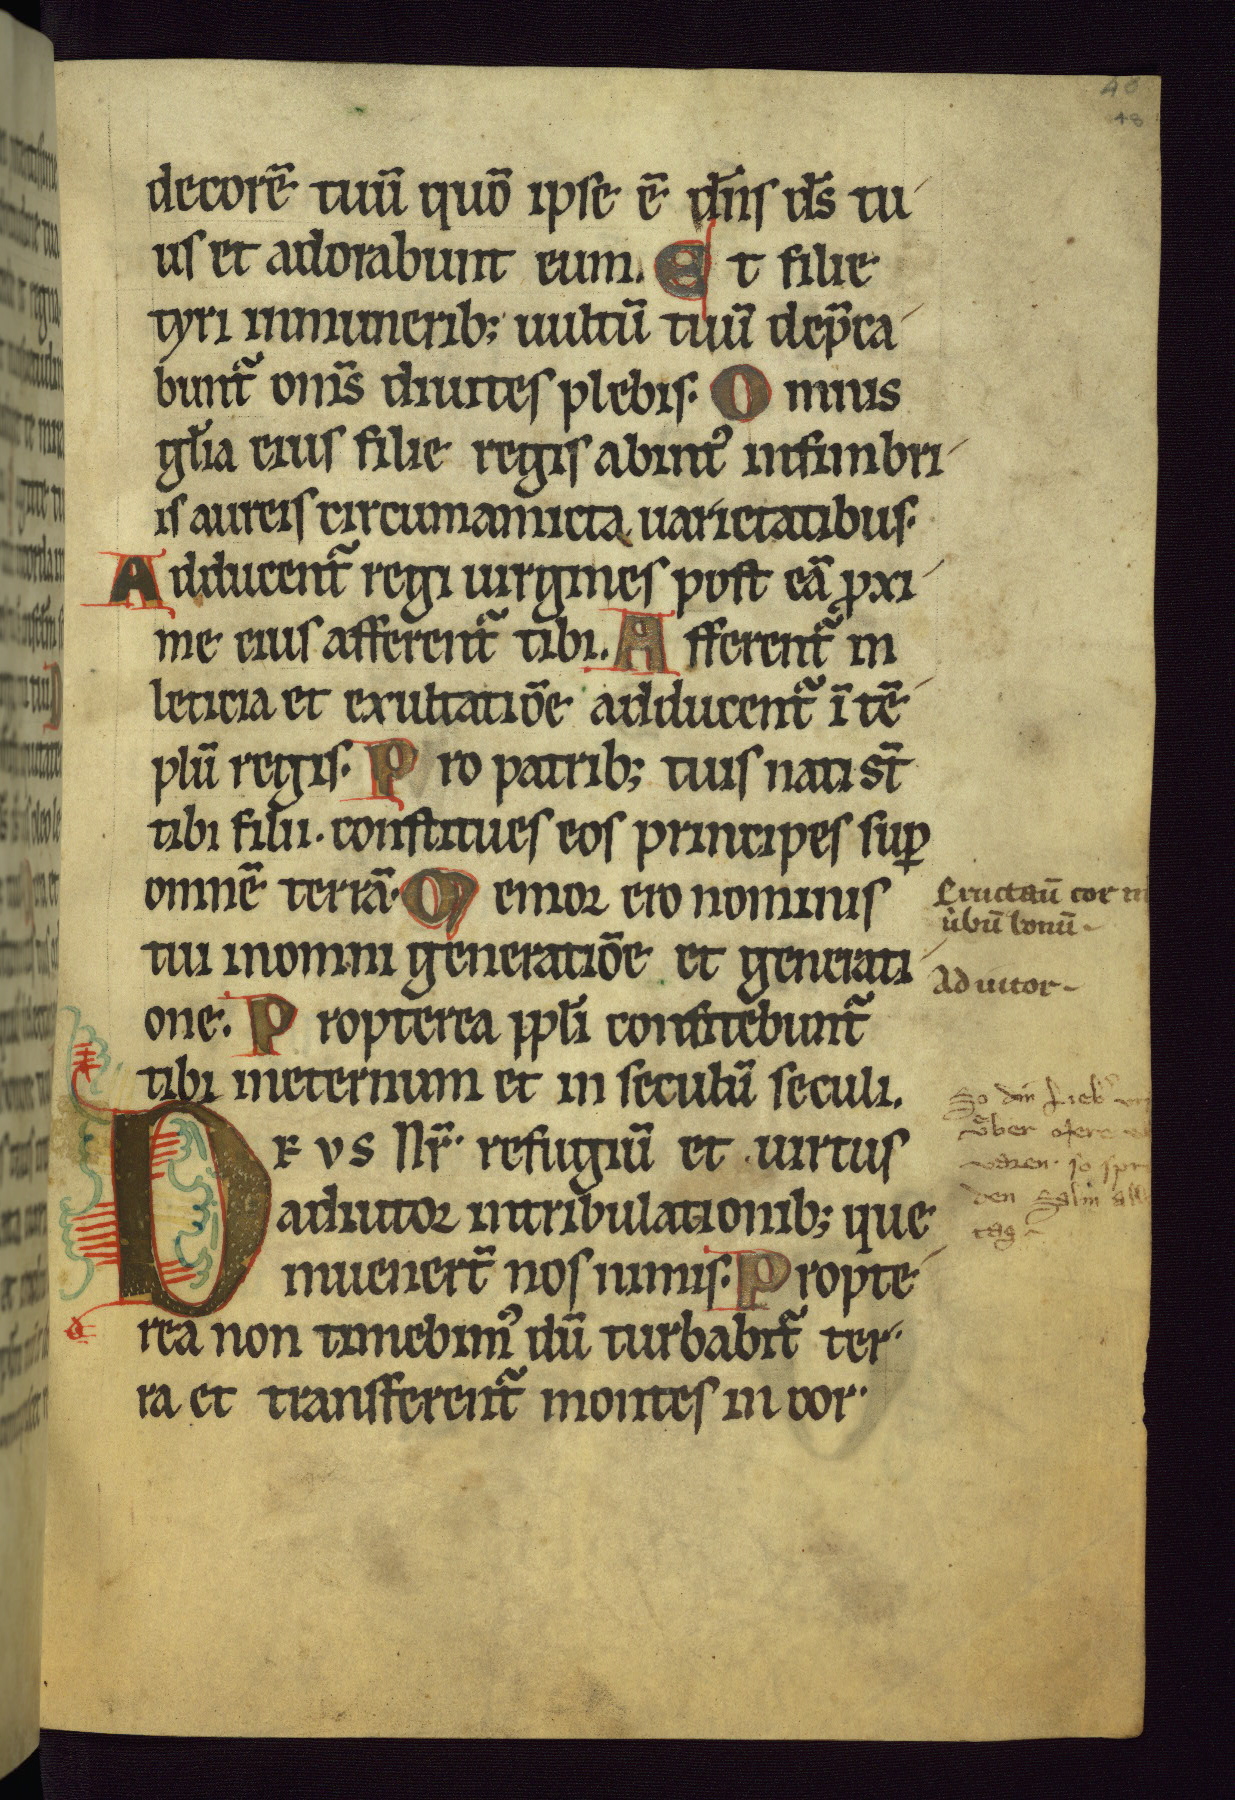 48
48
decorē tuū quō ipse ē dn̄s ds̄ tu
us et adorabunt eum. Et filie
tyri inmunerib; uultū tuū dep̄ca
bunt᷑ om̄s diuites plebis. Omnis
gl̄ia eius filie regis abint᷑ infimbri
is aureis circumamicta uarietatibus.
Adducent᷑ regi uirgines post eā ꝓxi
me eius afferent᷑ tibi. Afferent᷑ in
leticia et exultatiōe adducent᷑ ī tē
plū regis. Pro patrib; tuis nati st̄
tibi filii. constitues eos principes suꝑ
omnē terrā. Memor ero nominis
tui inomni generatiōe et generati
one. Propterea ppl̄i confitebunt᷑
tibi ineternum et in seculū seculi.
DEVS Nr̄. refugiū et uirtus
adiutor intribulationib; que
inuenert̄ nos nimis. Propte
rea non timebimꝰ dū turbabit᷑ ter
ra et transferent᷑ montes in cor
Eructauū cor
ūbū bonū
Adiutor
So din Lieb
den salm all
tag